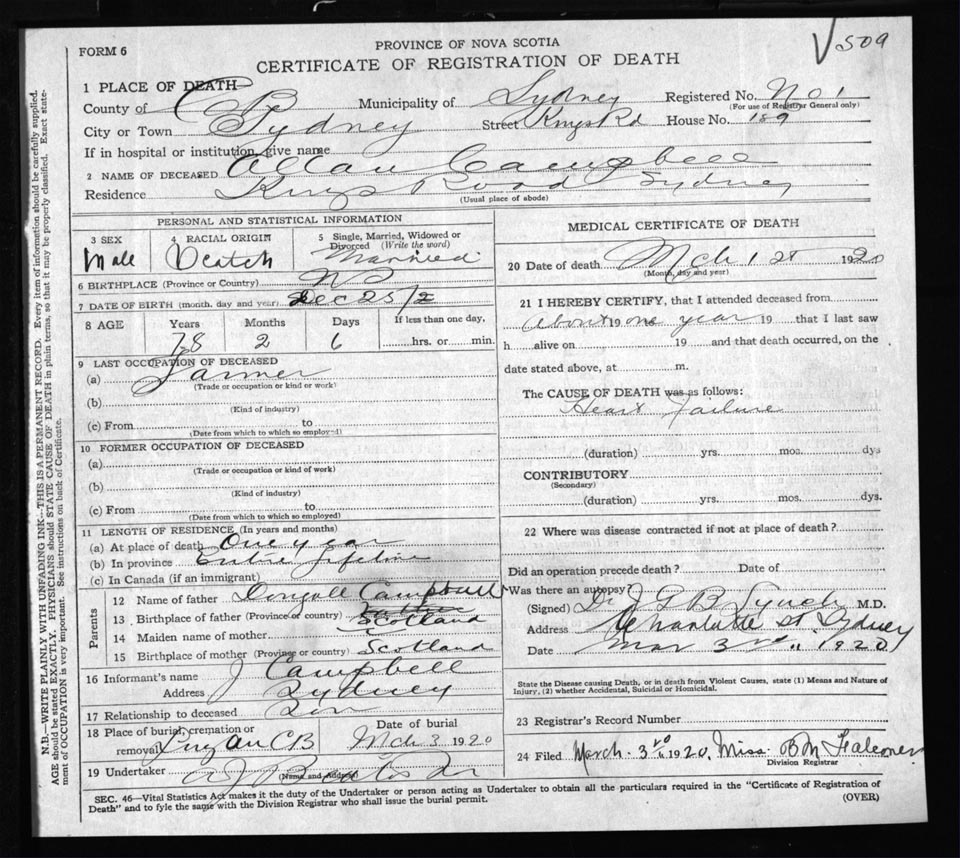 FORM 6
PROVINCE OF NOVA SCOTIA
509
CERTIFICATE OF REGISTRATION OF DEATH
1 PLACE OF DEATH
County of C B Municipality of Sydney Registered No. No 1
(For use of Registrar General only)
City or Town Sydney Street Kings Rd House No. 189
If in hospital or institution, give name
2 NAME OF DECEASED Allan Campbell
Residence Kings Road Sydney
(Usual place of abode)
PERSONAL AND STATISTICAL INFORMATION
3 SEX 4 RACIAL ORIGIN 5 Single, Married, Widowed or Divorced (Write the word)
Male Scotch Married
6 BIRTHPLACE (Province or Country) NS
7 DATE OF BIRTH (month, day and year) Dec 25
8 AGE Years Months Days If less than one day,
78 2 6 hrs. or min.
9 LAST OCCUPATION OF DECEASED
(a) Farmer
(Trade or occupation or kind or work)
(b)
(Kind of industry)
(c) From to
(Date from which to which so employed)
10 FORMER OCCUPATION OF DECEASED
(a)
(Trade or occupation or kind of work)
(b)
(Kind of industry)
(c) From to
(Date from which to which so employed)
11 LENGTH OF RESIDENCE (In years and months)
(a) At place of death One year
(b) In province Entire lifetime
(c) In Canada (if an immigrant)
Parents
12 Name of father Campbell
13 Birthplace of father (Province or country) Scotland
14 Maiden name of mother
15 Birthplace of mother (Province or country) Scotland
16 Informant's name J Campbell
Address Sydney
17 Relationship to deceased Son
18 Place of burial, cremation or removal Lingan CB Date of burial Mch 3 1920
19 Undertaker
(Name and Address)
MEDICAL CERTIFICATE OF DEATH
20 Date of death Mch 1st 1920
(Month, day and year)
21 I HEREBY CERTIFY, that I attended deceased from
About 19 one year 19 that I last saw
h alive on 19 and that death occurred, on the
date stated above, at m.
The CAUSE OF DEATH was as follows:
Heart Failure
(duration) yrs. mos. dys
CONTRIBUTORY
(Secondary)
(duration) yrs. mos. dys.
22 Where was disease contracted if not at place of death?
Did an operation precede death? Date of
Was there an autopsy?
(Signed) Dr J G B Lynch M.D.
Address Charlotte St. Sydney
Date Mar 3rd 1920
State the Disease causing Death, or in death from Violent Causes, state (1) Means and Nature of
Injury, (2) whether Accidental, Suicidal or Homicidal.
23 Registrar's Record Number
24 Filed March 3rd 1920. Miss B M Falconer
Division Registrar
SEC. 46—Vital Statistics Act makes it the duty of the Undertaker or person acting as Undertaker to obtain all the particulars required in the "Certificate of Registration of
Death" and to fyle the same with the Division Registrar who shall issue the burial permit. (OVER)
N.B.—WRITE PLAINLY WITH UNFADING INK—THIS IS A PERMANENT RECORD. Every item of information should be carefully supplied.
AGE should be stated EXACTLY. PHYSICIANS should STATE CAUSE OF DEATH in plain terms, so that it may be properly classified. Exact state-
ment of OCCUPATION is very important. See instructions on back of Certificate.